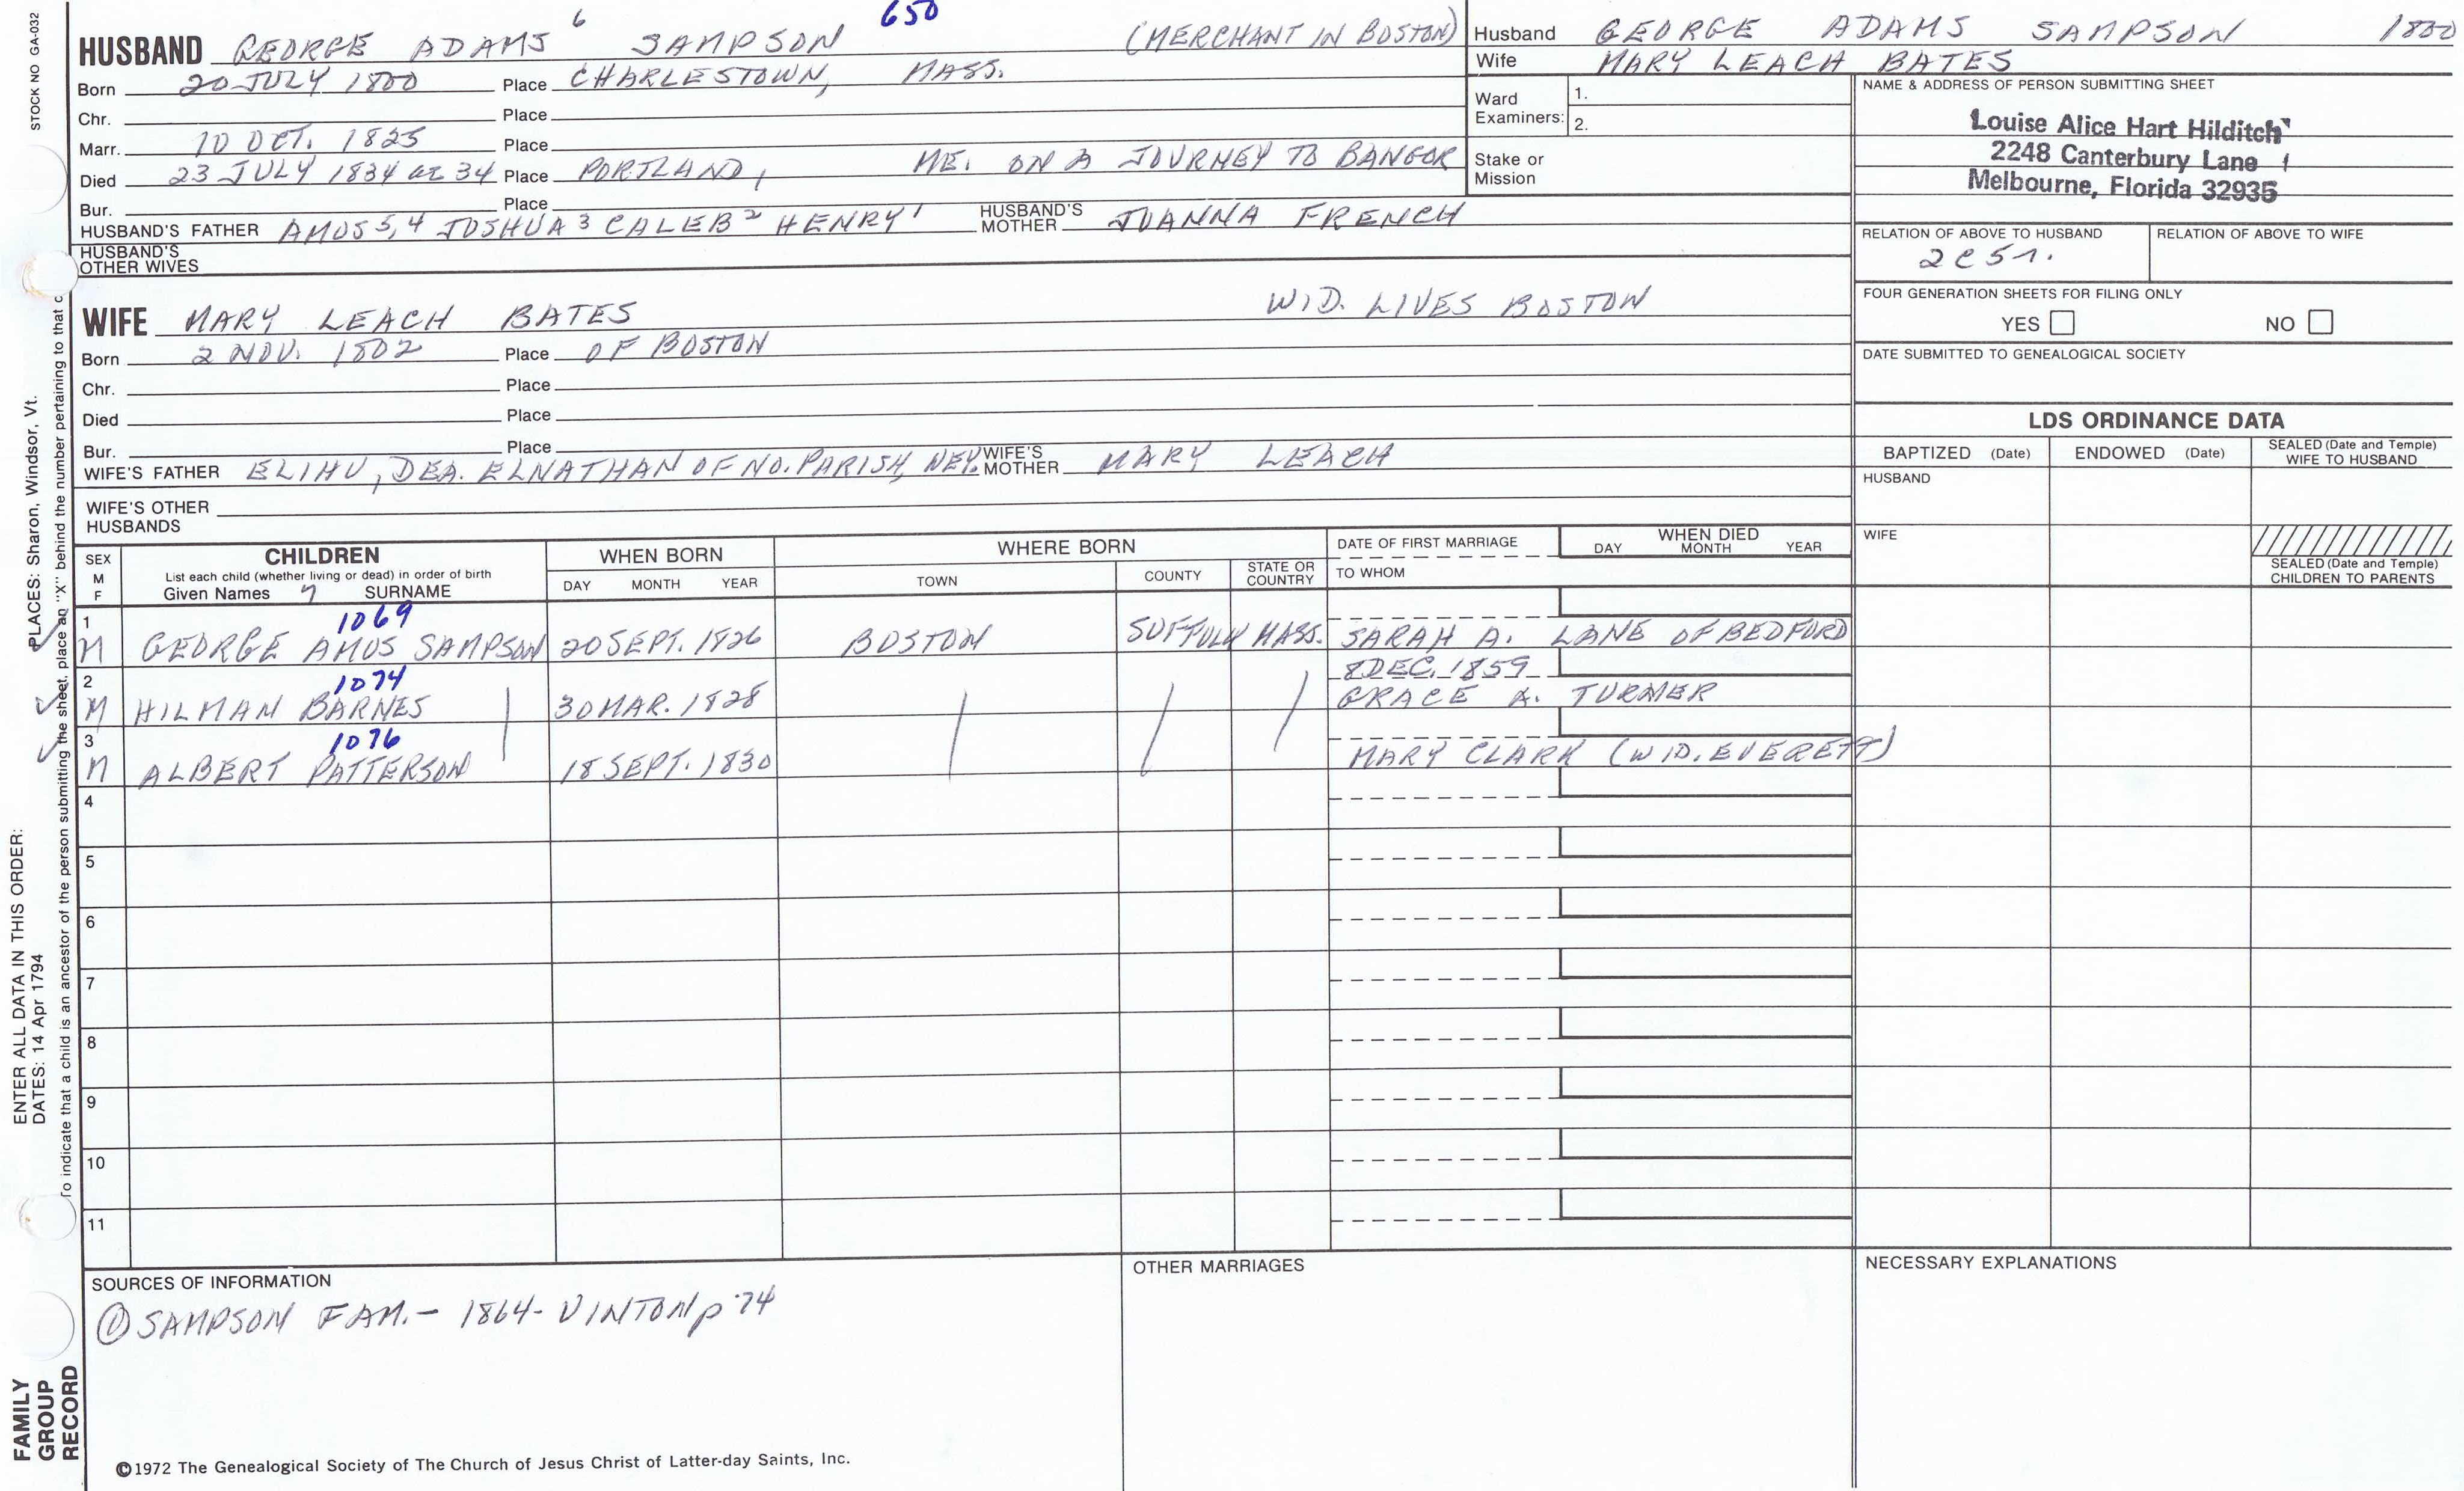 STOCK NO GA-032
6 650
HUSBAND GEORGE ADAMS SAMPSON (MERCHANT IN BOSTON)
Born 20 JULY 1800 Place CHARLESTOWN, MASS.
Chr. Place
Marr. 10 OCT. 1825 Place
Died 23 JULY 1834 AE 34 Place PORTLAND, ME. ON A JOURNEY TO BANGOR
Bur. Place
HUSBAND'S FATHER AMOS 5,4 JOSHUA 3 CALEB 2 HENRY 1 HUSBAND'S MOTHER JOANNA FRENCH
HUSBAND'S OTHER WIVES
WIFE MARY LEACH BATES WID. LIVES BOSTON
Born 2 NOV. 1802 Place OF BOSTON
Chr. Place
Died Place
Bur. Place
WIFE'S FATHER ELIHU, DEA. ELNATHAN OF NO. PARISH, WEY. WIFE'S MOTHER MARY LEACH
WIFE'S OTHER HUSBANDS
Husband GEORGE ADAMS SAMPSON 1800
Wife MARY LEACH BATES
Ward Examiners: 1.
2.
Stake or Mission
NAME & ADDRESS OF PERSON SUBMITTING SHEET
Louise Alice Hart Hilditch
2248 Canterbury Lane
Melbourne, Florida 32935
RELATION OF ABOVE TO HUSBAND RELATION OF ABOVE TO WIFE
FOUR GENERATION SHEETS FOR FILING ONLY
YES NO
DATE SUBMITTED TO GENEALOGICAL SOCIETY
LDS ORDINANCE DATA
BAPTIZED (Date) ENDOWED (Date) SEALED (Date and Temple) WIFE TO HUSBAND
HUSBAND
WIFE
SEALED (Date and Temple) CHILDREN TO PARENTS
SEX M F CHILDREN WHEN BORN WHERE BORN DATE OF FIRST MARRIAGE WHEN DIED
List each child (whether living or dead) in order of birth
Given Names 7 SURNAME DAY MONTH YEAR TOWN COUNTY STATE OR COUNTRY TO WHOM DAY MONTH YEAR
1 1069
M GEORGE AMOS SAMPSON 20 SEPT. 1826 BOSTON SUFFOLK MASS. SARAH A. LANE OF BEDFORD
2 1074 8 DEC. 1859
M HILMAN BARNES 30 MAR. 1828 GRACE A. TURNER
3 1076
M ALBERT PATTERSON 18 SEPT. 1830 MARY CLARK (WID. EVERETT)
4
5
6
7
8
9
10
11
SOURCES OF INFORMATION OTHER MARRIAGES NECESSARY EXPLANATIONS
① SAMPSON FAM. - 1864 - VINTON p 74
©1972 The Genealogical Society of The Church of Jesus Christ of Latter-day Saints, Inc.
FAMILY GROUP RECORD
ENTER ALL DATA IN THIS ORDER:
DATES: 14 Apr 1794
PLACES: Sharon, Windsor, Vt.
To indicate that a child is an ancestor of the person submitting the sheet, place an "X" behind the number pertaining to that c